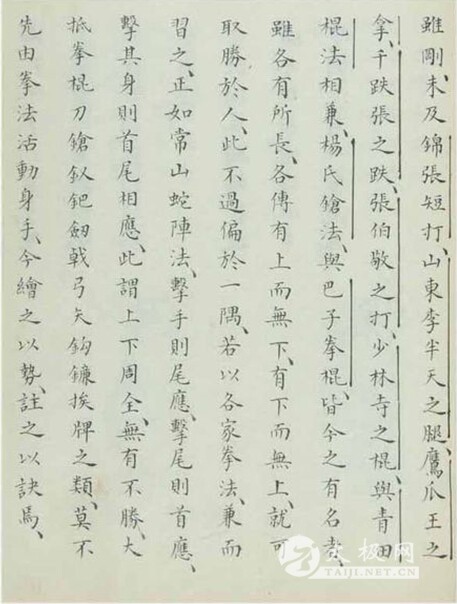 雖剛、未及錦張短打、山東李半天之腿、鷹爪王之
拿、千跌張之跌、張伯敬之打、少林寺之棍、與青田
棍法相兼、楊氏鎗法、與巴子拳棍、皆今之有名者、
雖各有所長、各傳有上而無下、有下而無上、就可
取勝於人、此不過偏於一隅、若以各家拳法、兼而
習之、正如常山蛇陣法、擊手則尾應、擊尾則首應、
擊其身則首尾相應、此謂上下周全、無有不勝、大
抵拳棍刀鎗釵鈀劒戟弓矢鉤鐮挨牌之類、莫不
先由拳法活動身手、今繪之以勢、註之以訣焉、
太极网
TAIJI.NET.CN